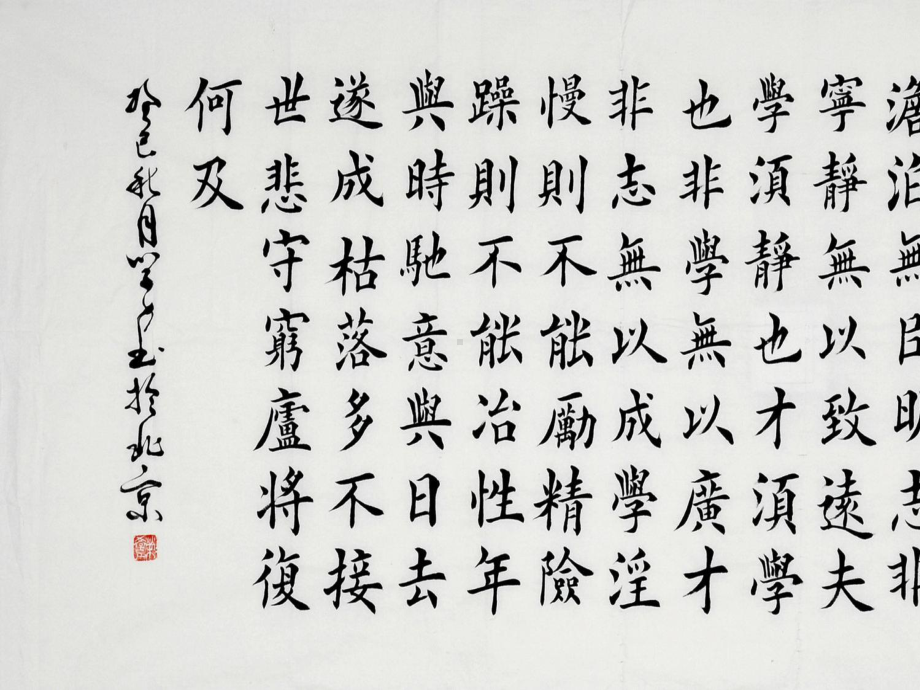 澹泊無㠯明志非
寧靜無以致遠夫
學須靜也才須學
也非學無以廣才
非志無以成學淫
慢則不能勵精險
躁則不能冶性年
與時馳意與日去
遂成枯落多不接
世悲守窮廬將復
何及
癸巳秋月书於北京